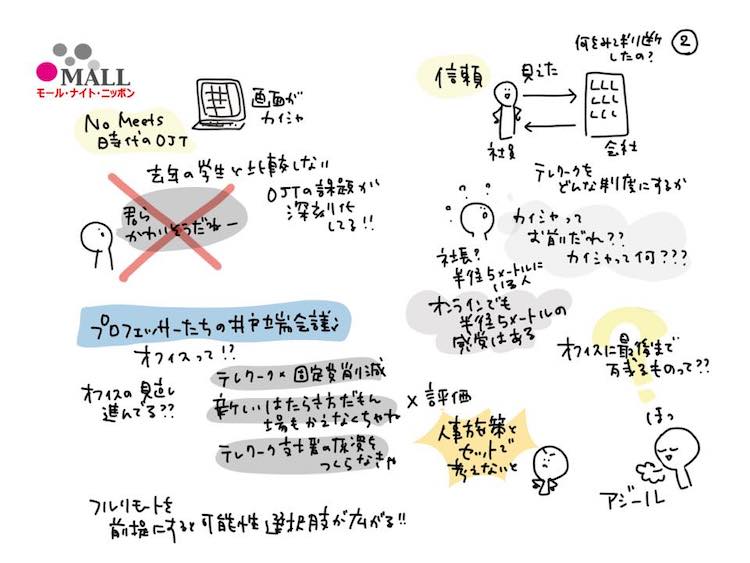 MALL
モール・ナイト・ニッポン
No Meets
時代のOJT
画面が
カイシャ
去年の学生と比較しない
君ら
かわいそうだねー
OJTの課題が
深刻化
してる!!
プロフェッサーたちの井戸端会議
オフィスって!?
オフィスの見直し
進んでる??
テレワーク×固定費削減
新しいはたらき方だもん
場もかえなくちゃね
テレワーク支援の原資を
つくらなきゃ
×評価
人事施策と
セットで
考えないと
フルリモートを
前提にすると可能性選択肢が広がる!!
何をみて判断
したの?
②
信頼
見えた
社員
会社
テレワークを
どんな制度にするか
カイシャって
お前だれ??
カイシャって何???
社長?
半径5メートルに
いる人
オンラインでも
半径5メートルの
感覚はある
オフィスに最後まで
残るものって??
はっ
アジール